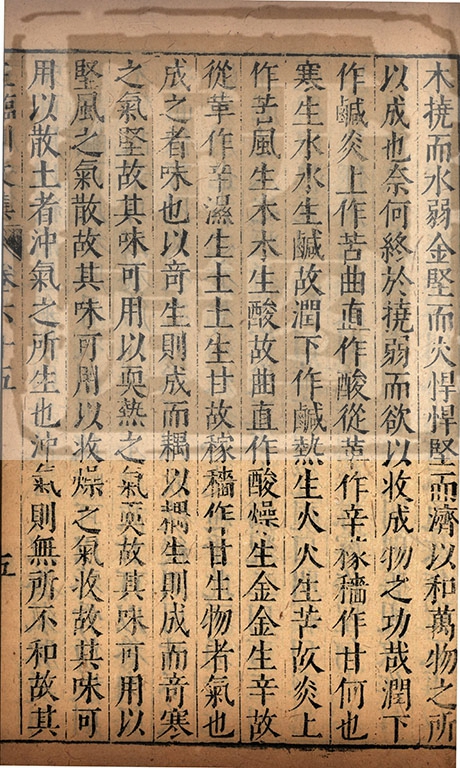 木撓而水弱金堅而火悍悍堅而濟以和萬物之所
以成也奈何終於撓弱而欲以收成物之功哉潤下
作鹹炎上作苦曲直作酸從革作辛稼穡作甘何也
寒生水水生鹹故潤下作鹹熱生火火生苦故炎上
作苦風生木木生酸故曲直作酸燥生金金生辛故
從革作辛濕生土土生甘故稼穡作甘生物者氣也
成之者味也以奇生則成而耦以耦生則成而奇寒
之氣堅故其味可用以耎熱之氣耎故其味可用以
堅風之氣散故其味可用以收燥之氣收故其味可
用以散土者冲氣之所生也冲氣則無所不和故其
王臨川文集
卷六十五
五